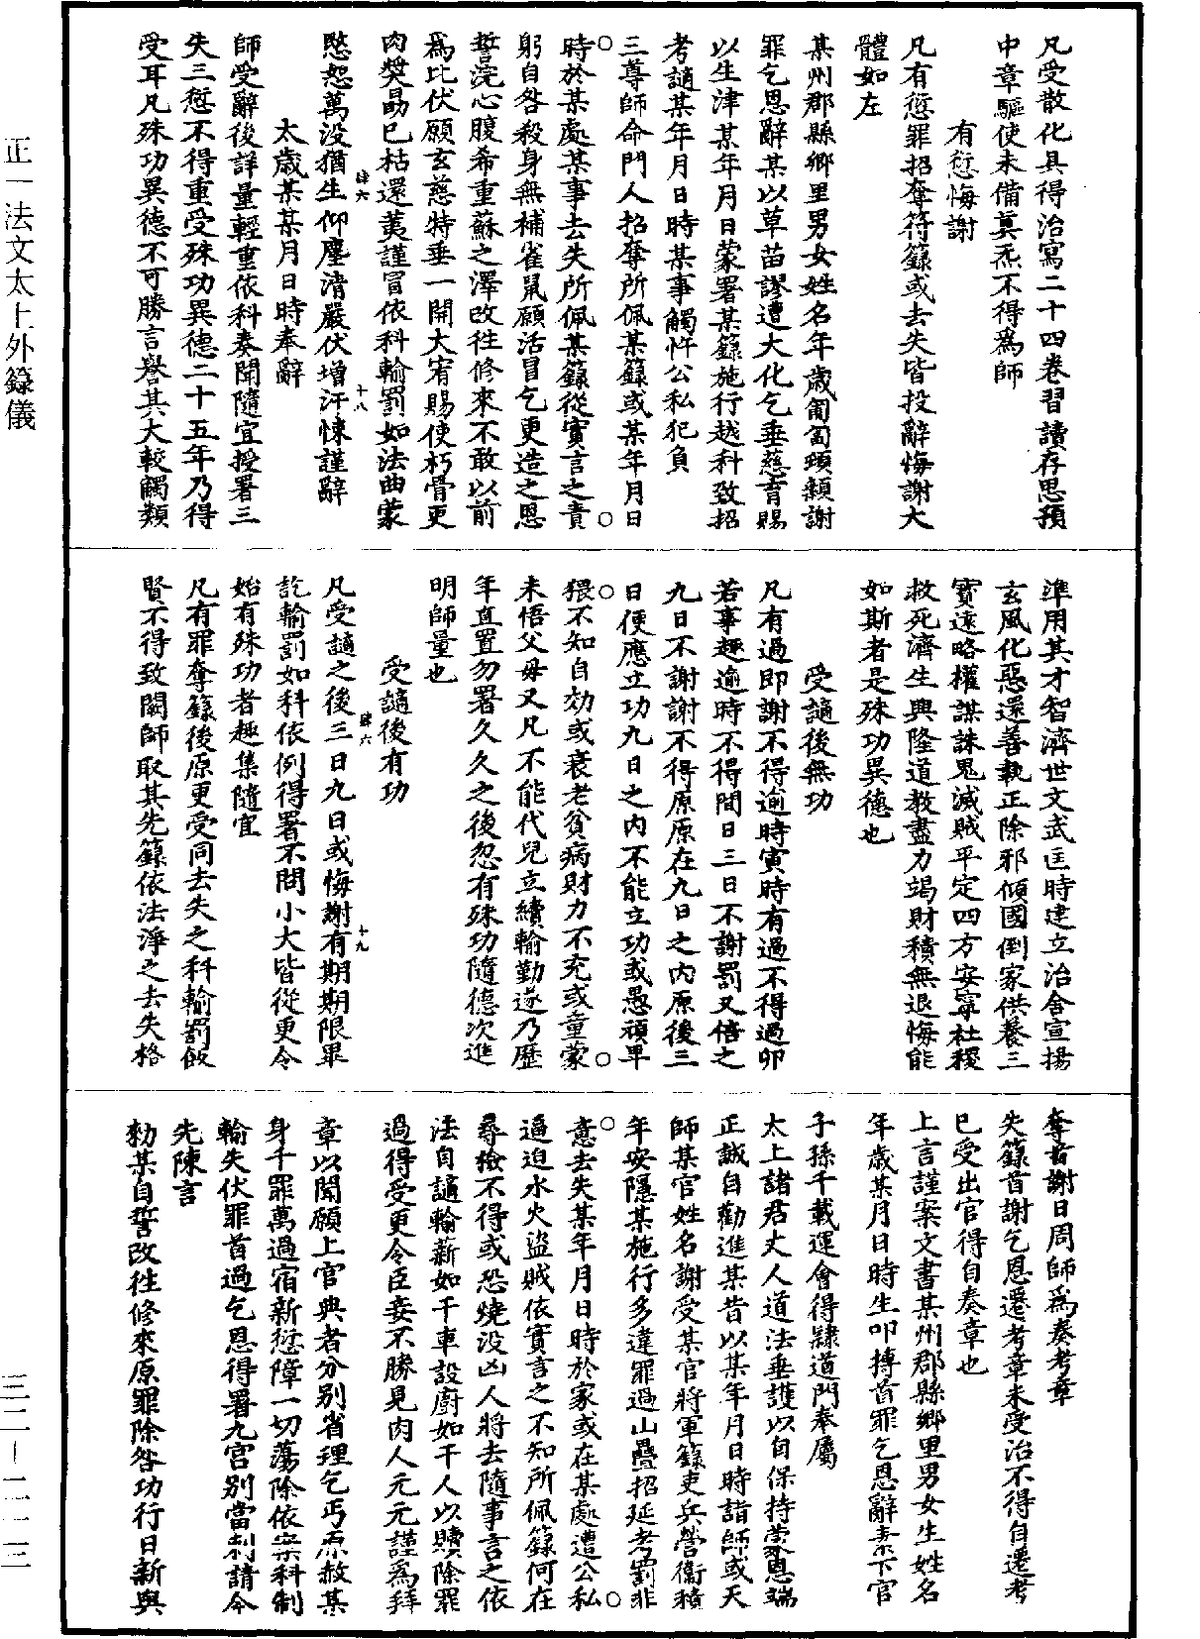 凡受散化具得治寫二十四卷習讀存思預
中章驅使未備真炁不得為師
有愆悔謝
凡有愆罪招奪符籙或去失皆投辭悔謝大
體如左
某州郡縣鄉里男女姓名年歲匍匐頓顙謝
罪乞恩辭某以草苗謬遭大化乞垂慈育賜
以生津某年月日蒙署某籙施行越科致招
考讁某年月日時某事觸忤公私犯負
三尊師命門人招奪所佩某籙或某年月日
時於某處某事去失所佩某籙從實言之責
躬自咎殺身無補雀鼠願活冒乞更造之恩
誓浣心腹希重蘇之澤改往修來不敢以前
為比伏願玄慈特垂一開大宥賜使朽骨更
肉奬勗已枯還荑謹冒依科輸罰如法曲蒙
愍恕萬沒猶生仰塵清嚴伏增汗悚謹辭
肆六
十八
太歲某某月日時奉辭
師受辭後詳量輕重依科奏聞隨宜授署三
失三愆不得重受殊功異德二十五年乃得
受耳凡殊功異德不可勝言譽其大較觸類
準用其才智濟世文武匡時建立治舍宣揚
玄風化惡還善執正除邪傾國倒家供養三
寶遠略權謀誅鬼滅賊平定四方安寧社稷
救死濟生興隆道教盡力竭財積無退悔能
如斯者是殊功異德也
受讁後無功
凡有過即謝不得逾時寅時有過不得過卯
若事趣逾時不得間日三日不謝罰又倍之
九日不謝謝不得原原在九日之內原後三
日便應立功九日之內不能立功或愚頑卑
猥不知自効或衰老貧病財力不充或童蒙
未悟父母又凡不能代兒立續輸勤遂乃歷
年直置勿署久久之後忽有殊功隨德次進
明師量也
受讁後有功
肆六
十九
凡受讁之後三日九日或悔謝有期期限畢
訖輸罰如科依例得署不問小大皆從更令
始有殊功者趣集隨宜
凡有罪奪籙後原更受同去失之科輸罰餃
賢不得致闕師取其先籙依法淨之去失格
奪首謝日周師為奏考章
失籙首謝乞恩遷考章未受治不得自遷考
已受出官得自奏章也
上言謹案文書某州郡縣鄉里男女生姓名
年歲某月日時生叩搏首罪乞恩辭素下官
子孫千載運會得隸道門奉屬
太上諸君丈人道法垂護以自保持蒙恩端
正誠自勸進某昔以某年月日時詣師或天
師某官姓名謝受某官將軍籙吏兵營衛積
年安隱某施行多違罪過山疊招延考罰非
意去失某年月日時於家或在某處遭公私
逼迫水火盜賊依實言之不知所佩籙何在
尋檢不得或恐燒沒凶人將去隨事言之依
法自讁輸薪如千車設廚如千人以贖除罪
過得受更令臣妾不勝見肉人元元謹為拜
章以聞願上官典者分別省理乞丐原赦某
身千罪萬過宿新愆障一切蕩除依案科制
輸失伏罪首過乞恩得署九宮別當刺請今
先陳言
勑某自誓改往修來原罪除咎功行日新與
正一法文太上外籙儀
三二—二一三